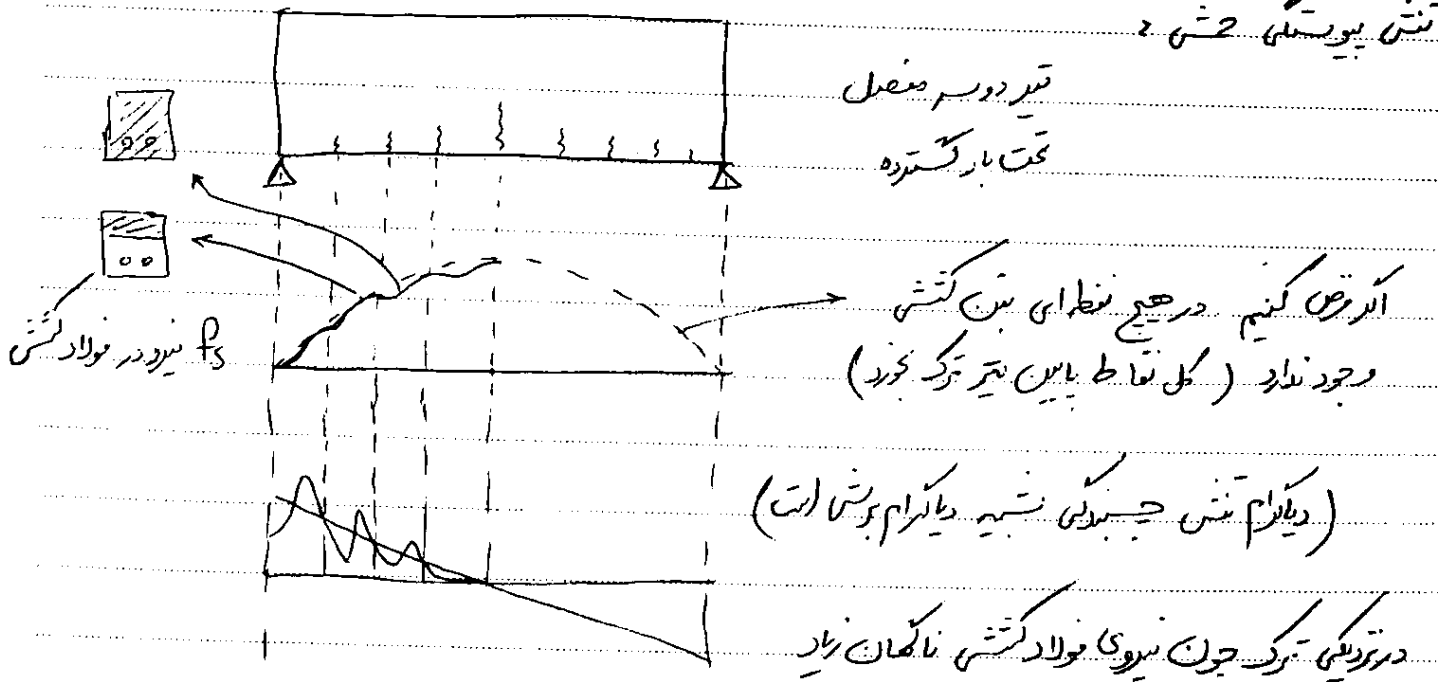 تنش پیوستگی خمشی :
تیر دو سر مفصل
تحت بار گسترده
اگر فرض کنیم در هیچ نقطه ای بتن کششی
وجود ندارد (کل نقاط پایین تیر ترک بخورد)
fs نیرو در فولاد کششی
(دیاگرام تنش چسبندگی شبیه دیاگرام برش است)
در نزدیکی ترک چون نیروی فولاد کششی ناگهان زیاد